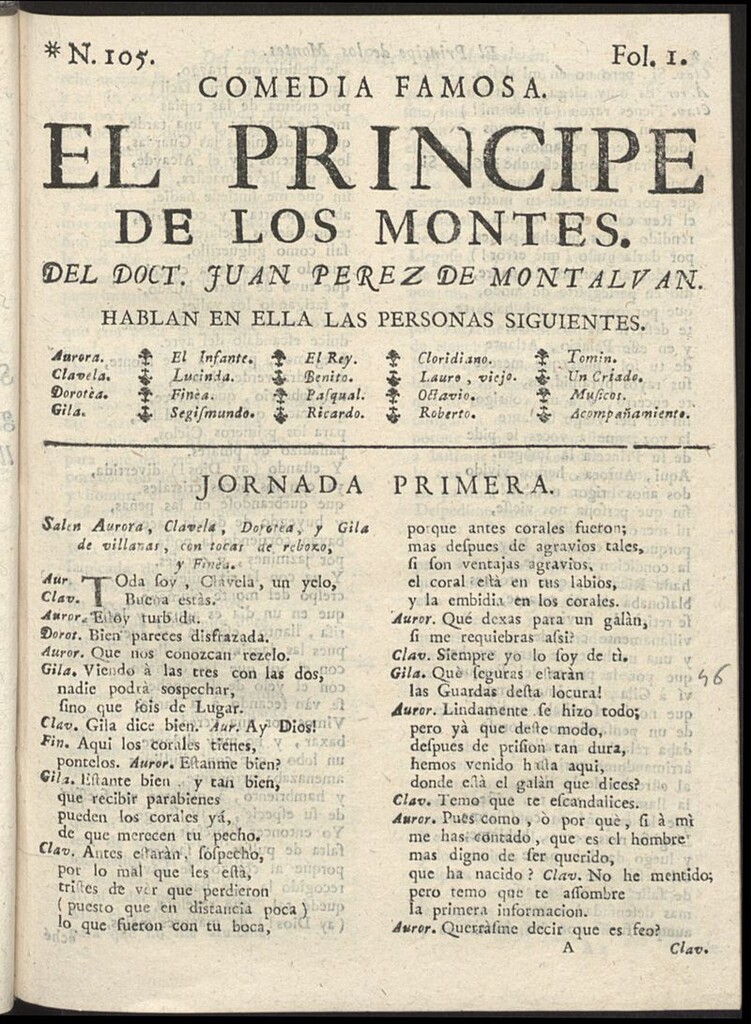 * N. 105. Fol. 1.
COMEDIA FAMOSA.
EL PRINCIPE
DE LOS MONTES.
DEL DOCT. JUAN PEREZ DE MONTALVAN.
HABLAN EN ELLA LAS PERSONAS SIGUIENTES.
Aurora. El Infante. El Rey. Cloridiano. Tomin.
Clavela. Lucinda. Benito. Lauro, viejo. Un Criado.
Dorotèa. Finèa. Paſqual. Octavio. Muſicos.
Gila. Segiſmundo. Ricardo. Roberto. Acompañamiento.
JORNADA PRIMERA.
Salen Aurora, Clavela, Dorotèa, y Gila
de villanas, con tocas de rebozo,
y Finèa.
Aur. TOda ſoy, Clavela, un yelo,
Clav. Buena estàs.
Auror. Eſtoy turbada.
Dorot. Bien pareces disfrazada.
Auror. Que nos conozcan rezelo.
Gila. Viendo à las tres con las dos,
nadie podrà ſospechar,
ſino que ſois de Lugar.
Clav. Gila dice bien. Aur. Ay Dios!
Fin. Aqui los corales tienes,
pontelos. Auror. Eſtanme bien?
Gila. Eſtante bien, y tan bien,
que recibir parabienes
pueden los corales yà,
de que merecen tu pecho.
Clav. Antes eſtaràn, ſoſpecho,
por lo mal que les eſtà,
triſtes de ver que perdieron
(puesto que en diſtancia poca)
lo que fueron con tu boca,
porque antes corales fueron;
mas deſpues de agravios tales,
ſi ſon ventajas agravios,
el coral eſtà en tus labios,
y la embidia en los corales.
Auror. Què dexas para un galàn,
ſi me requiebras aſsi?
Clav. Siempre yo lo ſoy de tì.
Gila. Què ſeguras eſtaràn
las Guardas deſta locura!
Auror. Lindamente ſe hizo todo;
pero yà que deſte modo,
deſpues de priſion tan dura,
hemos venido haſta aqui,
donde eſtà el galàn que dices?
Clav. Temo que te eſcandalices.
Auror. Pues como, ò por què, ſi à mì
me has contado, que es el hombre
mas digno de ſer querido,
que ha nacido? Clav. No he mentido;
pero temo que te aſſombre
la primera informacion.
Auror. Querràſme decir que es feo?
A Clav.
46